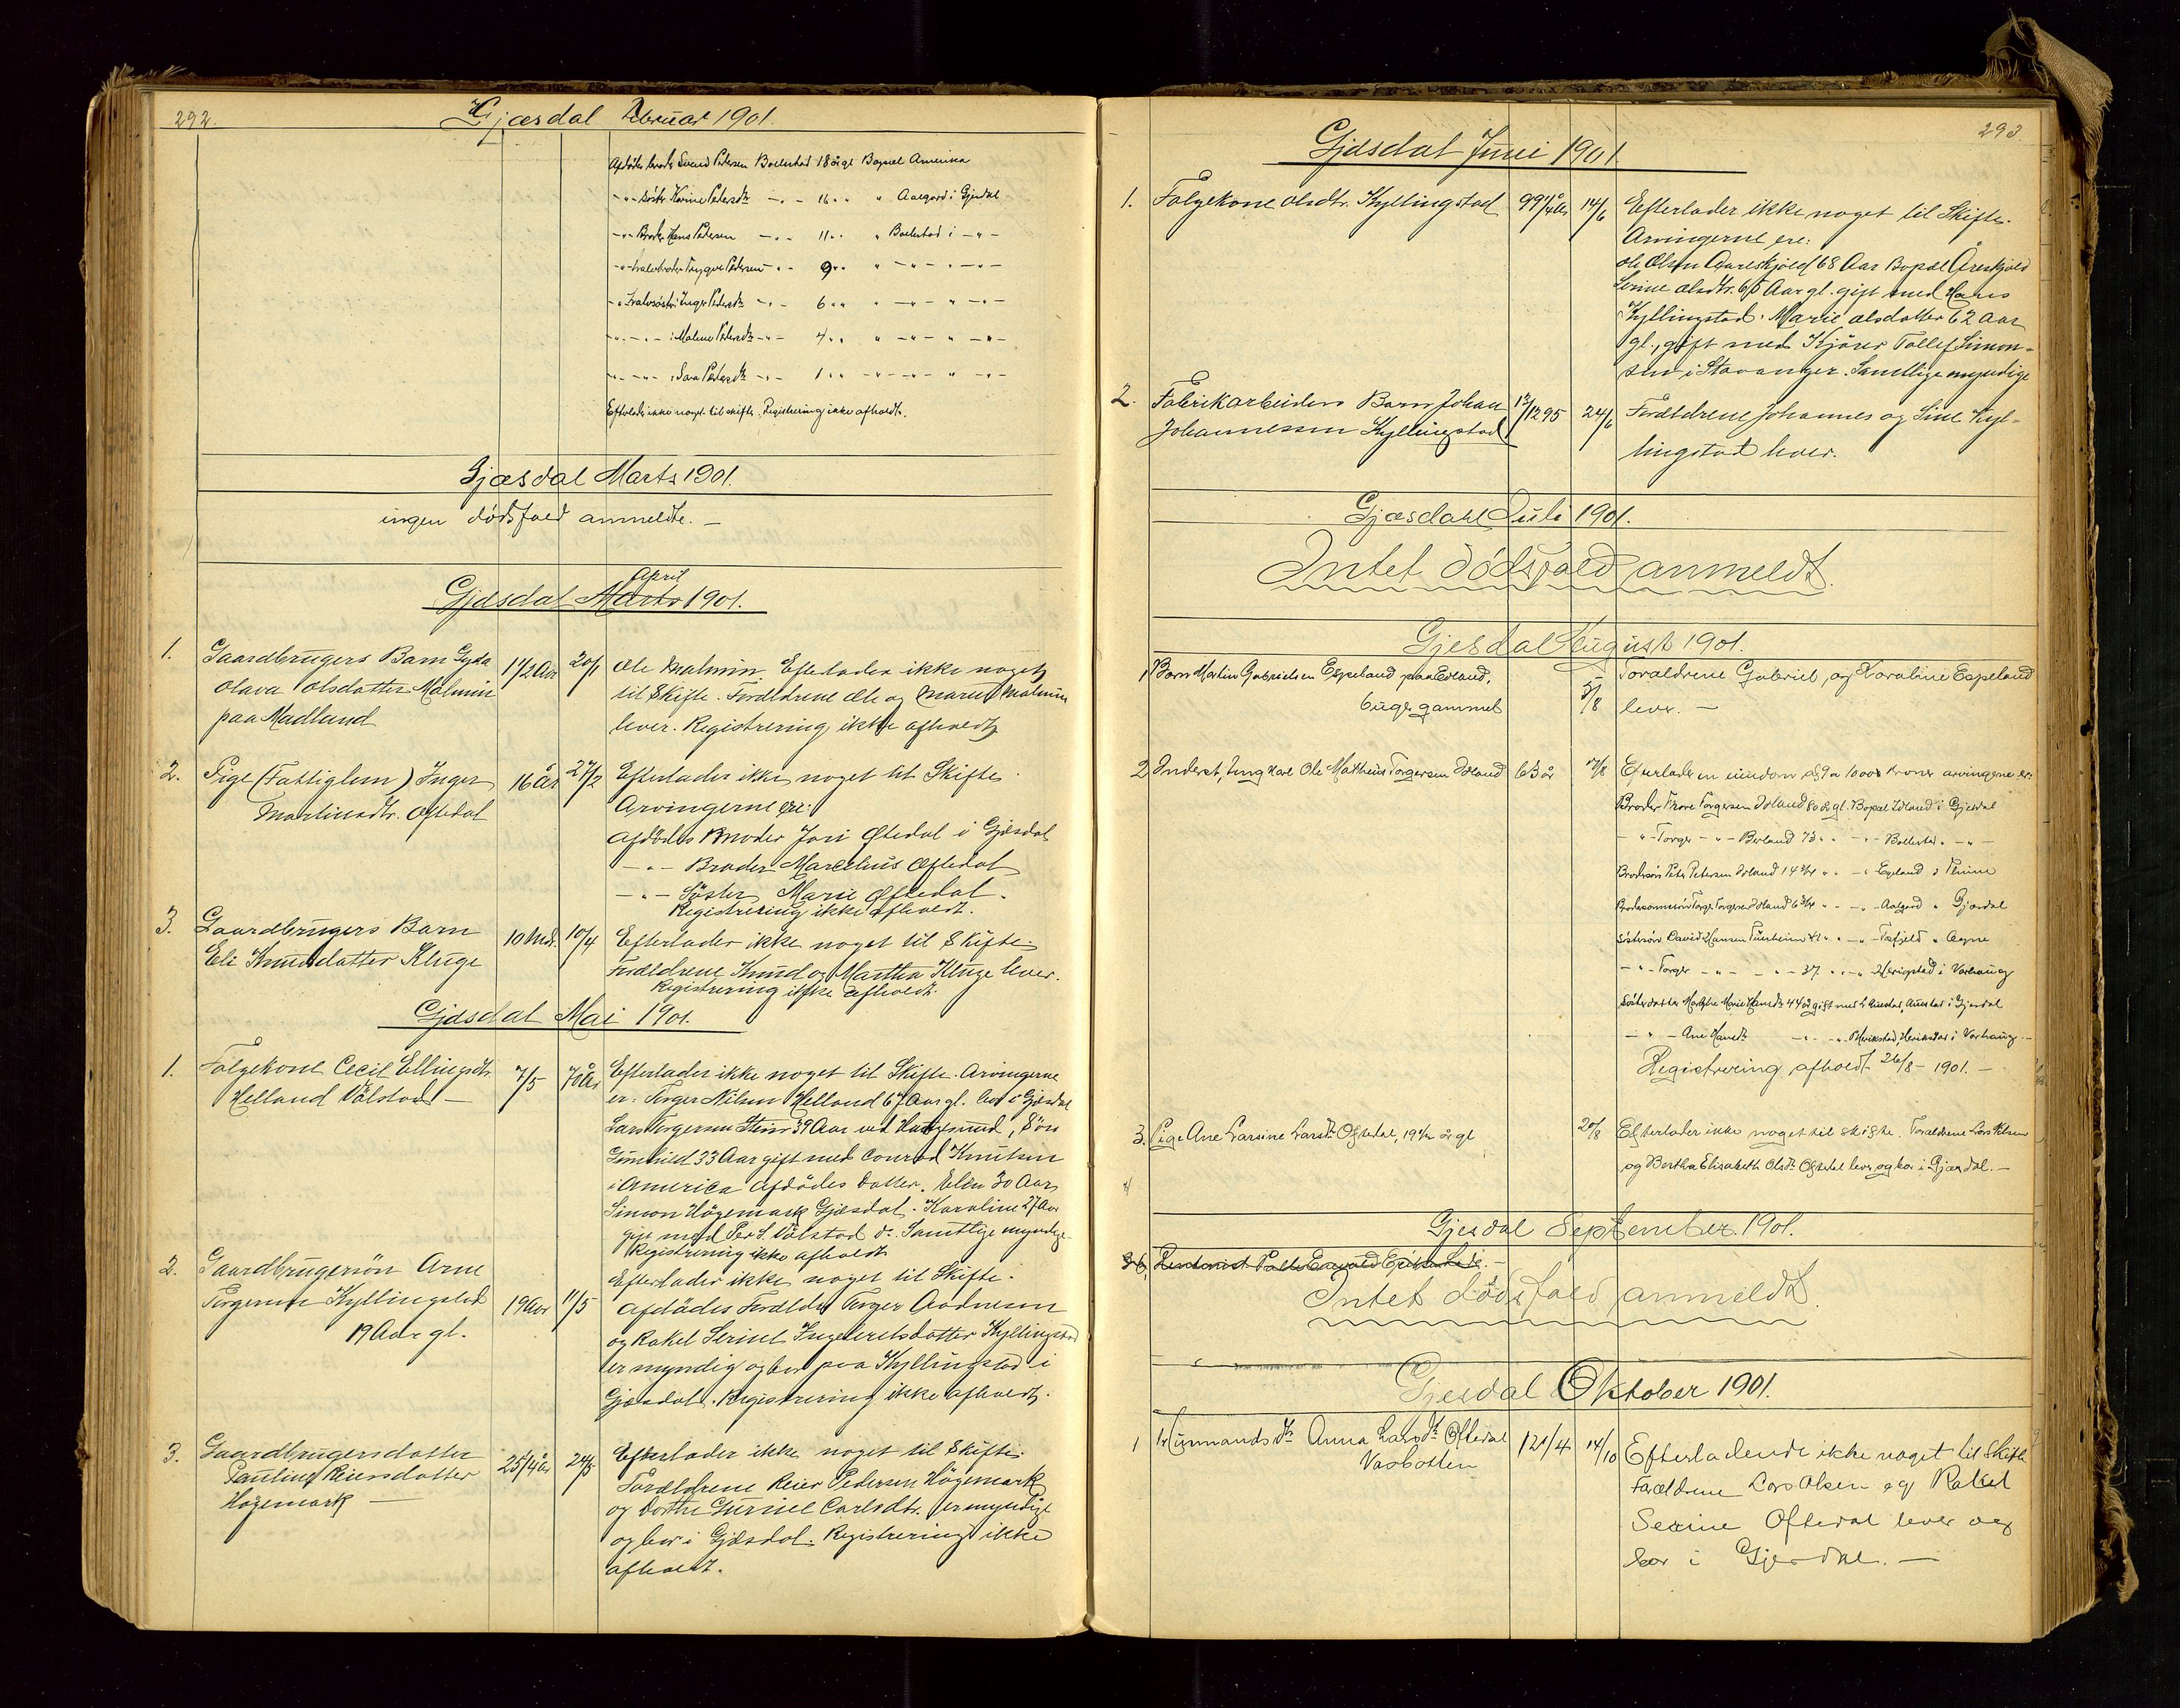 292.
Gjæsdal Februar 1901.
Afdødes broder Svend Pedersen Bollestad 18 år gl Bopæl Amerika
-"- søster Karine Pedersdtr -"- 16 " " " Aalgård i Gjesdal
-"- Broder Hans Pedersen -"- 11 " " " Bollestad i -"-
-"- halvbroder Trygve Pedersen -"- 9 " " " -"- " -"-
-"- halvsøster Inger Pedersdtr -"- 6 " " " -"- " -"-
-"- -"- Malene Pedersdtr -"- 4 " " " -"- " -"-
-"- -"- Sara Pedersdtr -"- 1 " " -"- -"- " -"-
Efterlader ikke noget til skifte. Registrering ikke afholdt.
Gjæsdal Marts 1901.
ingen dødsfald anmeldte. -
April
Gjæsdal Marts 1901.
1. Gaardbrugers Barn Gyda 1 1/2 Aar 20/1 Ole Malmin. Efterlader ikke noget
Olava Olsdatter Malmin til Skifte. Forældrene Ole og Maria Malmin
paa Madland lever. Registrering ikke afholdt
2. Pige (Fattiglem) Inger 16 År 27/2 Efterlader ikke noget til Skifte
Martinsdtr. Oftedal Arvingerne ere:
Afdødes Moder Jori Oftedal i Gjæsdal
-"- Broder Marcelius Oftedal
-"- Søster Marie Oftedal.
Registrering ikke afholdt.
3. Gaardbrugers Barn 10 Mdr. 10/4 Efterlader ikke noget til Skifte.
Eli Knudsdatter Kluge Forældrene Knud og Martha Kluge lever.
Registrering ikke afholdt.
Gjæsdal Mai 1901.
1. Følgekone Cecil Ellingsdtr 7/5 70 År Efterlader ikke noget til Skifte. Arvingerne
Helland Válstad - er: Torger Nilsen Helland 67 Aar gl. bor i Gjæsdal
Lars Torgersen 39 Aar ved Haugesund, Søn
Gunhild 33 Aar gift med Conrad Knutsen
i America Afdødes Datter. Elen 30 Aar
Simon Høgemark Gjæsdal. Karoline 27 Aar
gift med Per S. Válstad do. Samtlige myndige
Registrering ikke afholdt
2. Gaardbrugersøn Arne Efterlader ikke noget til Skifte.
Torgersen Kyllingstad 19 Aar 11/5 Afdødes Forældre Torger Aadnesen
19 Aar gl. og Rakel Serine Ingebretsdatter Kyllingstad
er myndig og bor paa Kyllingstad i
Gjæsdal. Registrering ikke afholdt.
3. Gaardbrugersdatter 25 1/4 År 24/5 Efterlader ikke noget til Skifte.
Pauline Reiersdatter Forældrene Reier Pedersen Høgemark
Høgemark - og Dorthe Gurine Carlsdtr. er myndige
og bor i Gjæsdal. Registrering ikke
afholdt.
293
Gjæsdal Juni 1901.
1. Følgekone Olsdtr. Kyllingstad 99 1/4 År 14/6 Efterlader ikke noget til Skifte.
Arvingerne ere:
Ole Olsen Aareskjold 68 Aar Bopæl Åreskjold
Serine Olsdtr. 65 Aar gl. gift med Hans
Kyllingstad. Marie Olsdatter 62 Aar
gl., gift med Kjører Tollef Simon-
sen i Stavanger. Samtlige myndige
2. Fabrikarbeiders Barn Johan 13/12 95 24/6 Forældrene Johannes og Sine Kyl-
Johannessen Kyllingstad lingstad lever.
Gjæsdahl Juli 1901.
Intet dödsfald anmeldt.
Gjesdal August 1901.
1 Barn Martin Gabrielsen Espeland paa Edland, 5/8 Forældrene Gabriel og Karoline Espeland
6 uger gammel lever. -
2 Inderst, Ungkarl Ole Matheus Torgersen Idland 63 år 17/8 Efterlader en eiendom af ca 1000 kroner arvingerne er:
Broder Tore Torgersen Idland 80 år gl. Bopæl Idland i Gjesdal
-"- Torger -"- Berland 73 " " -"- Bollestad " -"-
Brodersøn Peter Petersen Idland 14 3/4 " " -"- Egeland i
Torger Torgersen Idland 6 3/4 " " -"- Aalgård " Gjesdal
Søstersøn David Hansen 41 " " -"- Tosfjeld " Ogne
-"- Torger -"- -"- 37 " " -"- Herigstad i Varhaug
Søsterdatter Marthe Marie Hansdtr 44 år gift med Auestad, Auestad i Gjesdal
-"- Ane Hansdtr -"- -"- i Varhaug -
Registrering afholdt 26/8 - 1901. -
3. Pige Ane Larsine Larsdtr Oftedal, 19 1/2 år gl 20/8 Efterlader ikke noget til skifte. Forældrene Lars Nilsen
og Bertha Elisabeth Olsdtr Oftedal lever og bor i Gjæsdal. -
4
Gjesdal September 1901.
Intet dödsfald anmeldt.
Gjesdal Oktober 1901.
1 Husmandsdtr Anna Larsdtr Oftedal 12 1/4 14/10 Efterladende ikke noget til Skifte
Vasbotten Forældrene Lars Olsen og Rakel
Serine Oftedal lever og
bor i Gjesdal. -